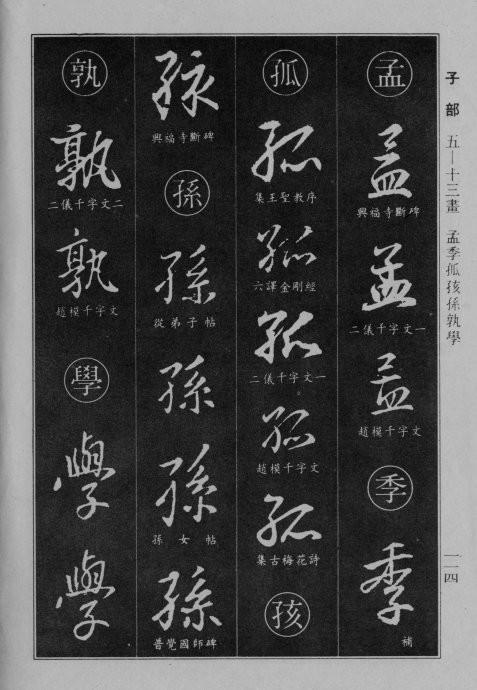 子部 五—十三畫 孟季孤孩孫孰學
一一四
孟
孟
興福寺斷碑
孟
二儀千字文一
孟
趙模千字文
季
季
補
孤
孤
集王聖教序
孤
六譯金剛經
孤
二儀千字文一
孤
趙模千字文
孤
集古梅花詩
孩
孩
興福寺斷碑
孫
孫
從弟子帖
孫
孫
孫女帖
孫
普覺國師碑
孰
孰
二儀千字文二
孰
趙模千字文
學
學
學